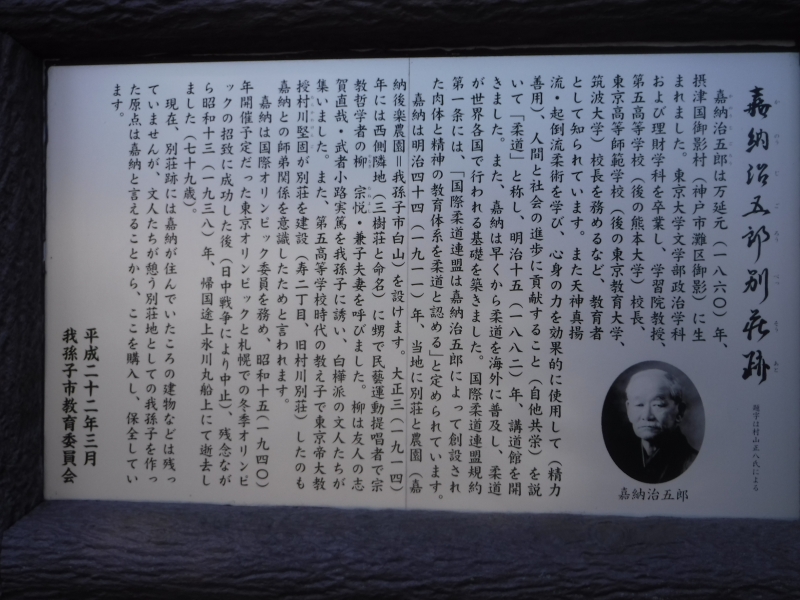 嘉納治五郎別荘跡
かのうじごろうべっそうあと
題字は村山正八氏による
嘉納治五郎は万延元(一八六〇)年、
摂津国御影村(神戸市灘区御影)に生
まれました。東京大学文学部政治学科
および理財学科を卒業し、学習院教授、
第五高等学校(後の熊本大学)校長、
東京高等師範学校(後の東京教育大学、
筑波大学)校長を務めるなど、教育者
として知られています。また天神真揚
流・起倒流柔術を学び、心身の力を効果的に使用して(精力
善用)、人間と社会の進歩に貢献すること(自他共栄)を説
いて「柔道」と称し、明治十五(一八八二)年、講道館を開
きました。また、嘉納は早くから柔道を海外に普及し、柔道
が世界各国で行われる基礎を築きました。国際柔道連盟規約
第一条には、「国際柔道連盟は嘉納治五郎によって創設され
た肉体と精神の教育体系を柔道と認める」と定められています。
嘉納は明治四十四(一九一一)年、当地に別荘と農園(嘉
納後楽農園=我孫子市白山)を設けます。大正三(一九一四)
年には西側隣地(三樹荘と命名)に甥で民藝運動提唱者で宗
教哲学者の柳 宗悦・兼子夫妻を呼びました。柳は友人の志
賀直哉・武者小路実篤を我孫子に誘い、白樺派の文人たちが
集いました。また、第五高等学校時代の教え子で東京帝大教
授村川堅固が別荘を建設(寿二丁目、旧村川別荘)したのも
嘉納との師弟関係を意識したためと言われます。
嘉納は国際オリンピック委員を務め、昭和十五(一九四〇)
年開催予定だった東京オリンピックと札幌での冬季オリンピ
ックの招致に成功した後(日中戦争により中止)、残念なが
ら昭和十三(一九三八)年、帰国途上氷川丸船上にて逝去し
ました(七十九歳)。
現在、別荘跡には嘉納が住んでいたころの建物などは残っ
ていませんが、文人たちが憩う別荘地としての我孫子を作っ
た原点は嘉納と言えることから、ここを購入し、保全してい
ます。
平成二十二年三月
我孫子市教育委員会
嘉納治五郎